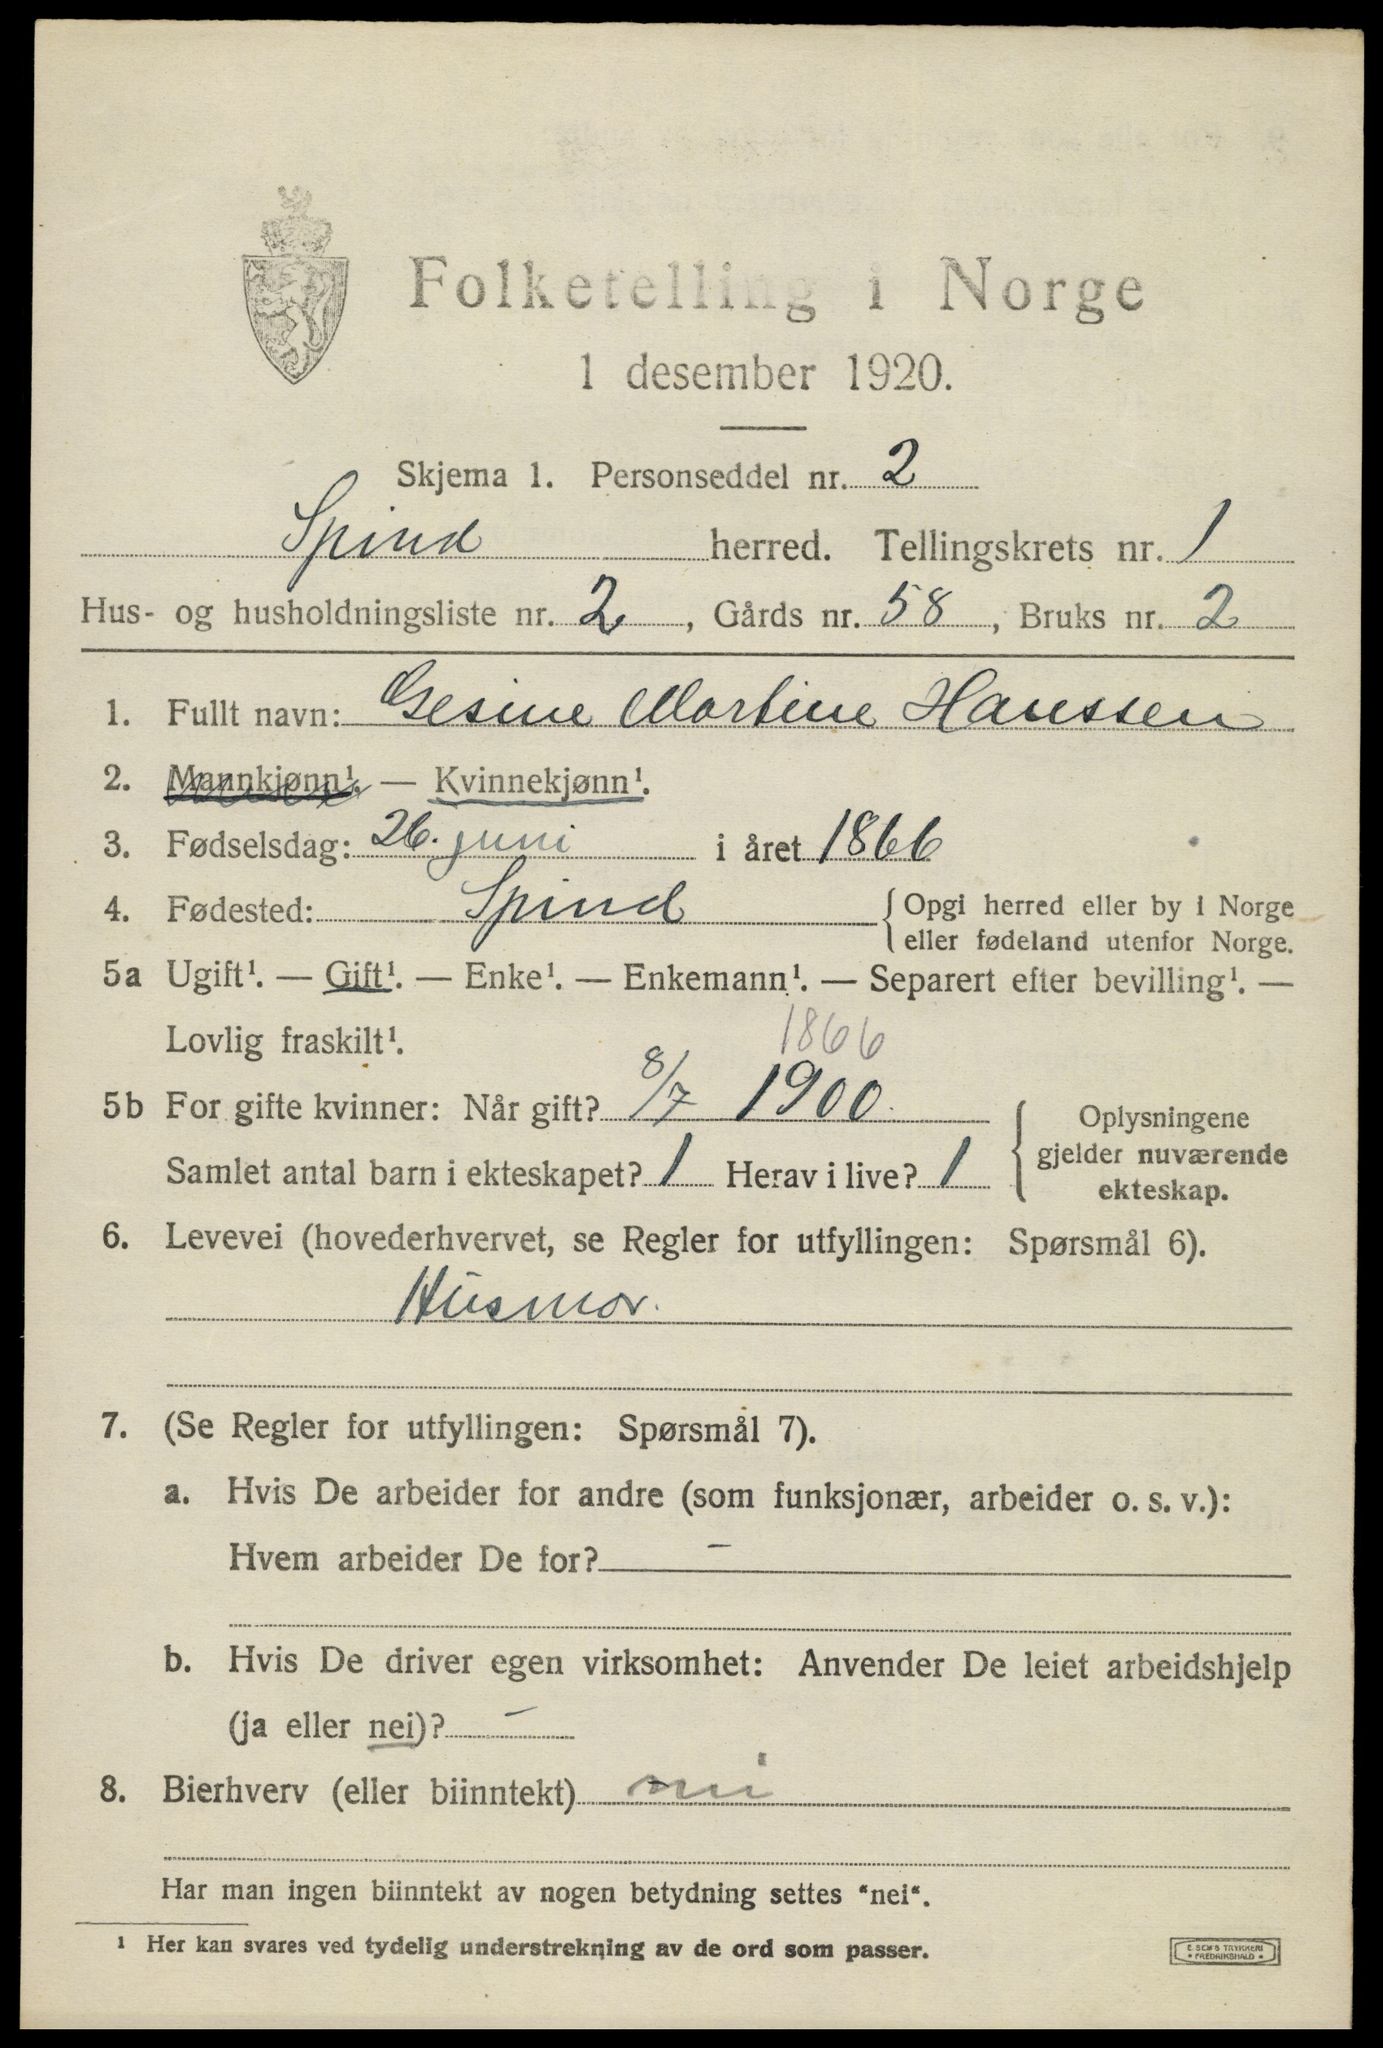 Folketelling i Norge
1 desember 1920.
Skjema 1. Personseddel nr. 2
Spind herred. Tellingskrets nr. 1
Hus- og husholdningsliste nr. 2, Gårds nr. 58, Bruks nr. 2
1. Fullt navn: Gesine Martine Hanssen
2. Mannkjønn¹. — Kvinnekjønn¹.
3. Fødselsdag: 26. juni i året 1866
4. Fødested: Spind { Opgi herred eller by i Norge
eller fødeland utenfor Norge.
5a Ugift¹. — Gift¹. — Enke¹. — Enkemann¹. — Separert efter bevilling¹. —
Lovlig fraskilt¹.
1866
5b For gifte kvinner: Når gift? 8/7 1900
Samlet antal barn i ekteskapet? 1 Herav i live? 1
{ Oplysningene
gjelder nuværende
ekteskap.
6. Levevei (hovederhvervet, se Regler for utfyllingen: Spørsmål 6).
Husmor.
7. (Se Regler for utfyllingen: Spørsmål 7).
a. Hvis De arbeider for andre (som funksjonær, arbeider o. s. v.):
Hvem arbeider De for? –
b. Hvis De driver egen virksomhet: Anvender De leiet arbeidshjelp
(ja eller nei)? –
8. Bierhverv (eller biinntekt) nei
Har man ingen biinntekt av nogen betydning settes "nei".
¹ Her kan svares ved tydelig understrekning av de ord som passer.
E. SEM'S TRYKKERI
* FREDRIKSHALD *